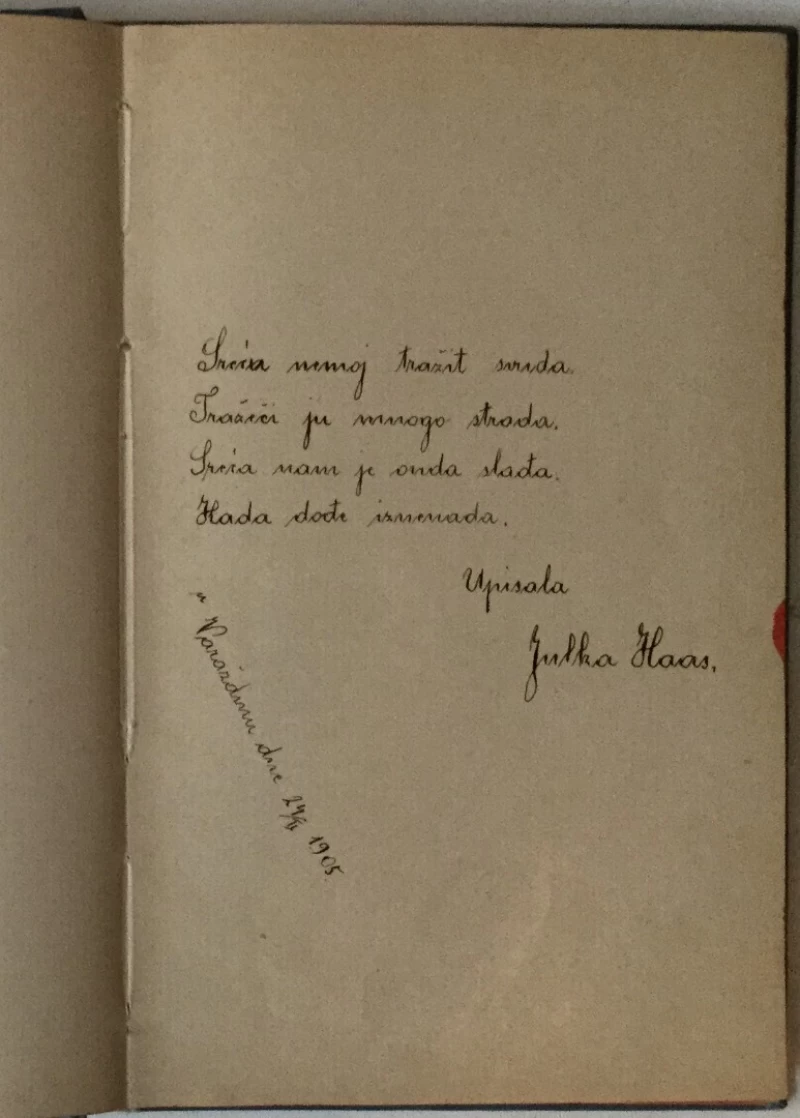 Sreća nemoj tražit svuda.
Tražeći ju mnogo strada.
Sreća nam je onda slađa.
Kada dođe iznenada.
Upisala
Julka Haas,
u Varaždinu dne 1905.